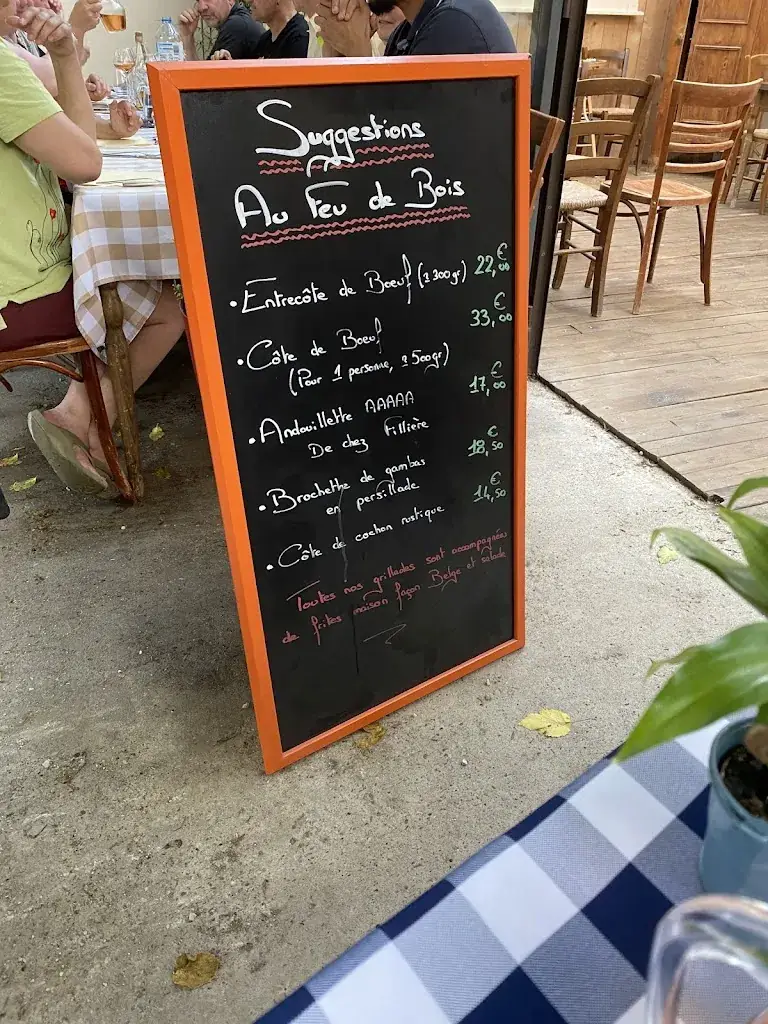 Suggestions
Au Feu de Bois
• Entrecôte de Boeuf (± 300gr) 22,00 €
• Côte de Boeuf 33,00 €
(Pour 1 personne, ± 500gr)
• Andouillette AAAAA 17,00 €
De chez Fillière
• Brochette de gambas 18,50 €
en persillade
• Côte de cochon rustique 14,50 €
Toutes nos grillades sont accompagnées
de frites maison façon Belge et salade